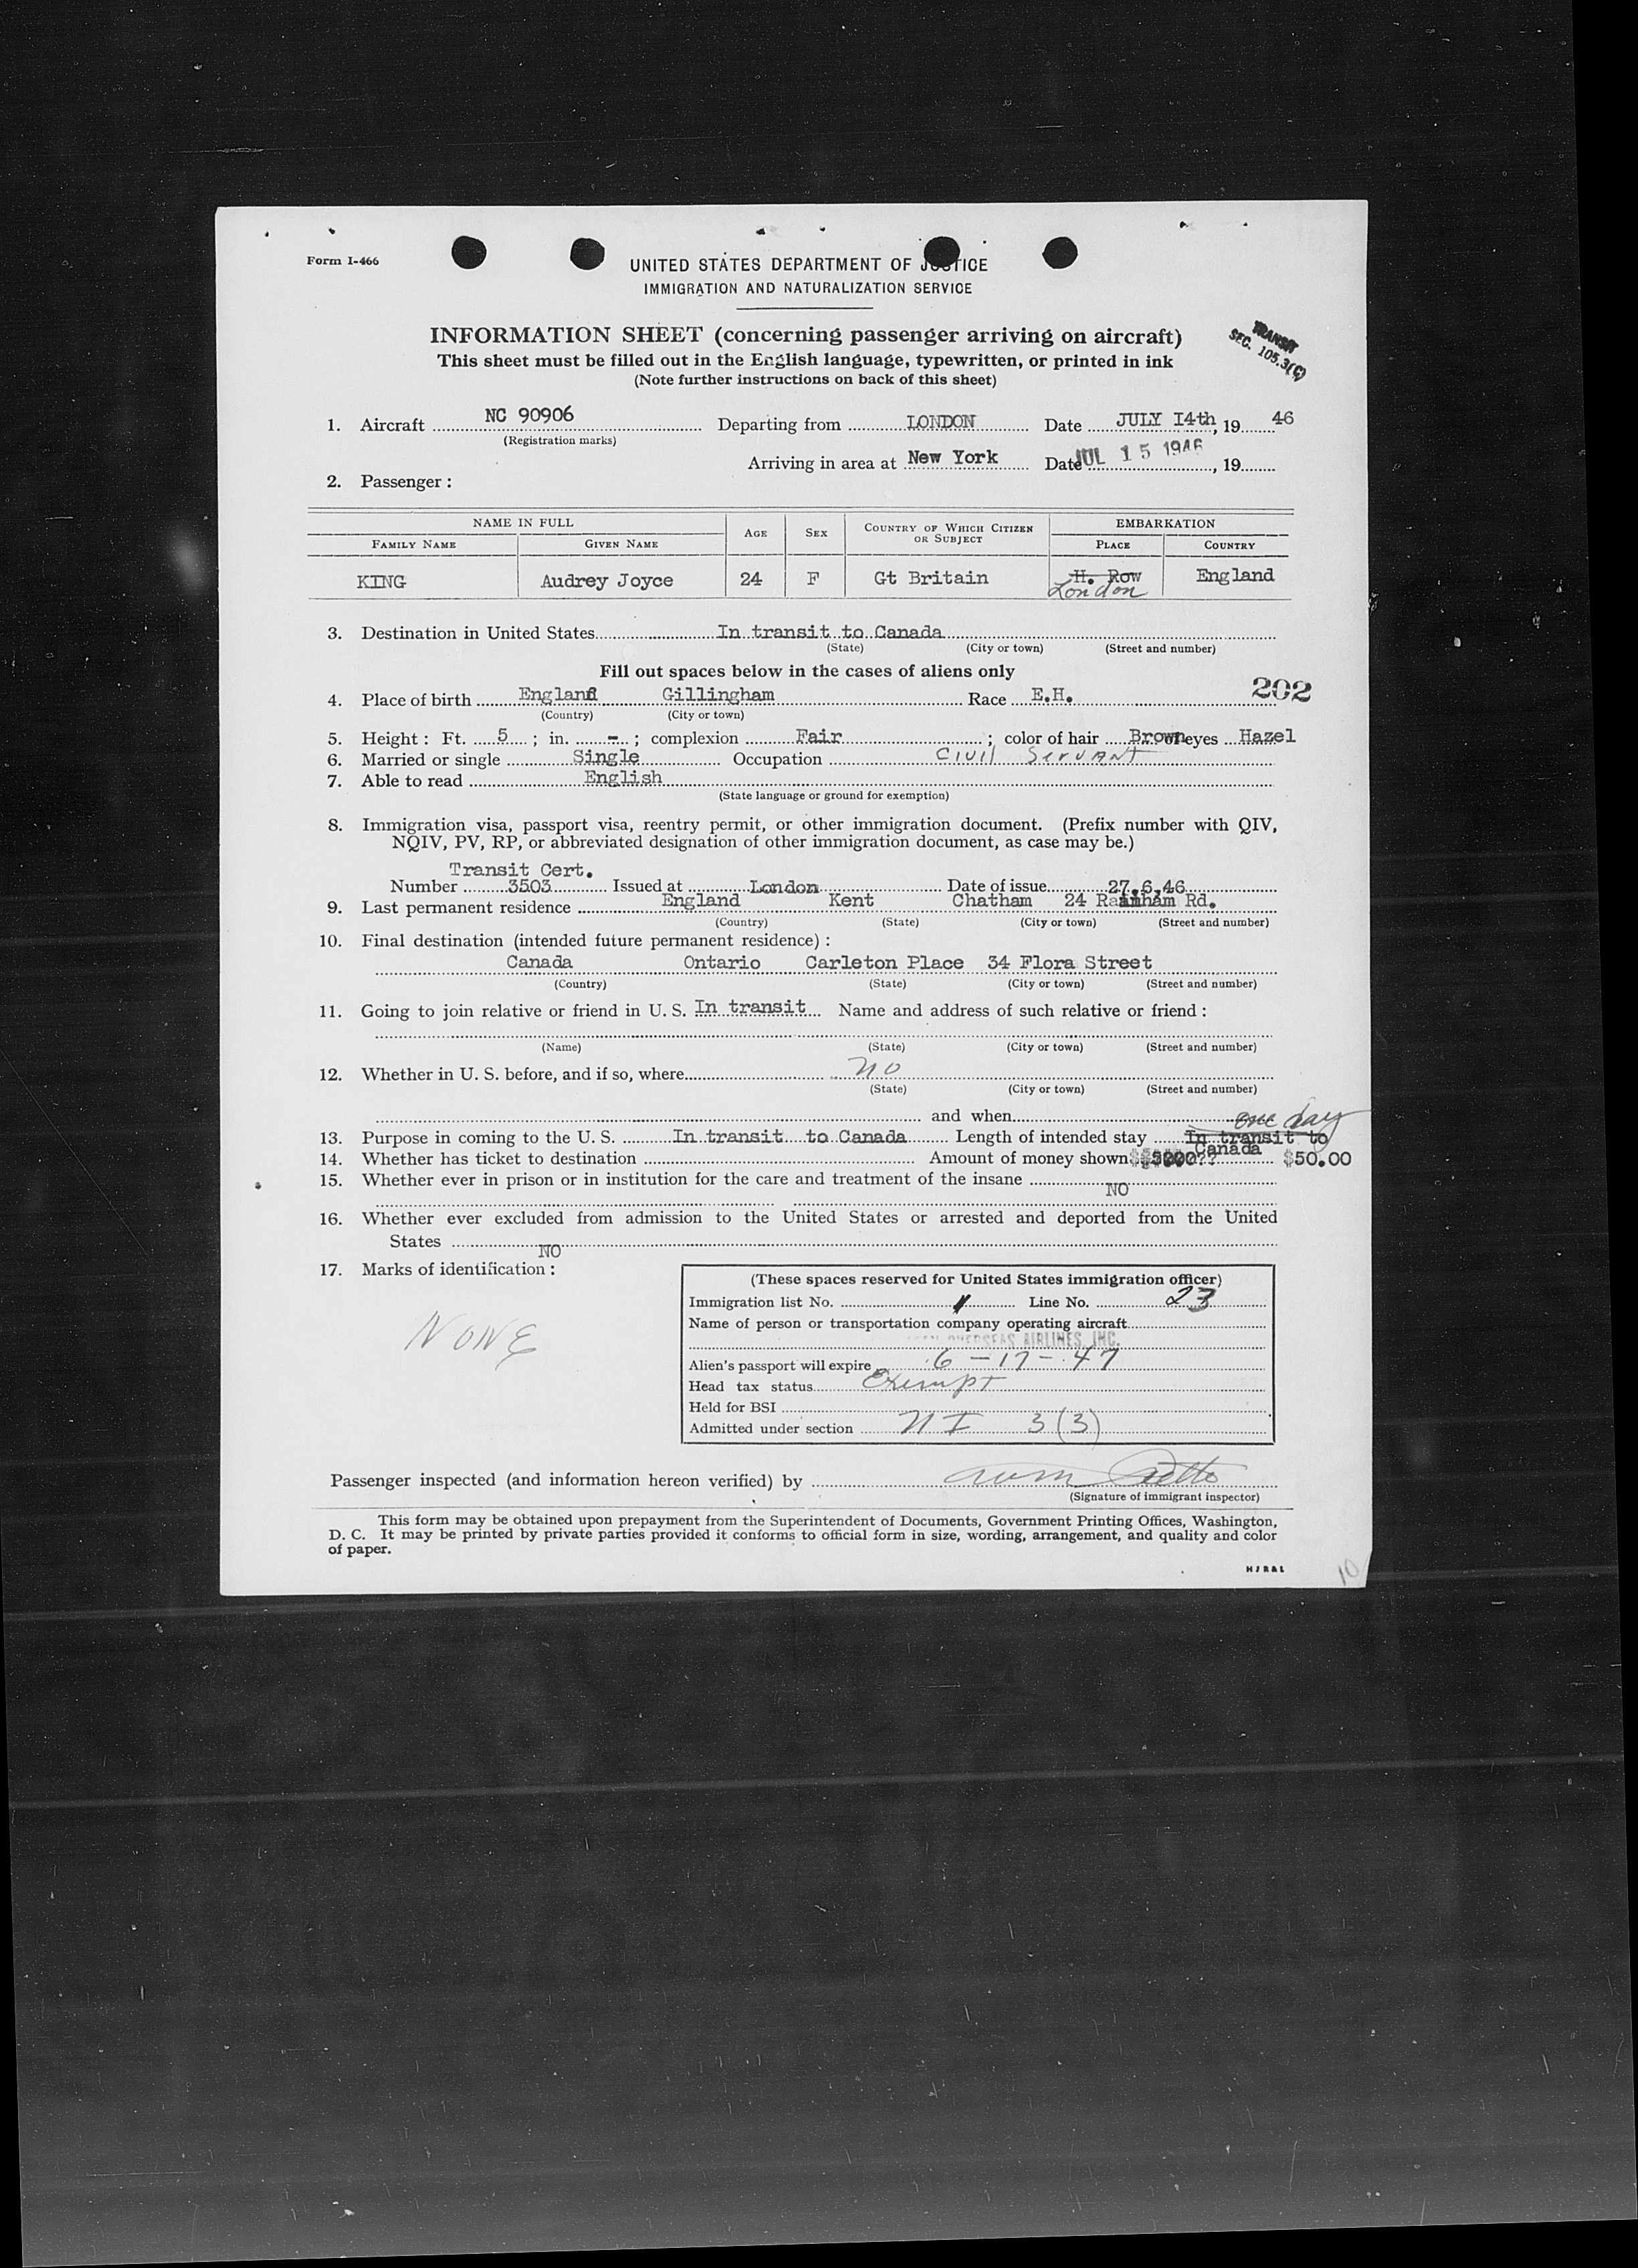 Form I-466
UNITED STATES DEPARTMENT OF JUSTICE
IMMIGRATION AND NATURALIZATION SERVICE
INFORMATION SHEET (concerning passenger arriving on aircraft)
This sheet must be filled out in the English language, typewritten, or printed in ink
(Note further instructions on back of this sheet)
TRANSIT
SEC. 105.3(C)
1. Aircraft NC 90906 Departing from LONDON Date JULY I4th, 19 46
(Registration marks)
Arriving in area at New York Date JUL 15 1946, 19
2. Passenger :
NAME IN FULL AGE SEX COUNTRY OF WHICH CITIZEN OR SUBJECT EMBARKATION
FAMILY NAME GIVEN NAME PLACE COUNTRY
KING Audrey Joyce 24 F Gt Britain H. Row England
London
3. Destination in United States In transit to Canada
(State) (City or town) (Street and number)
Fill out spaces below in the cases of aliens only
202
4. Place of birth England Gillingham Race E.H.
(Country) (City or town)
5. Height : Ft. 5 ; in. - ; complexion Fair ; color of hair Brown eyes Hazel
6. Married or single Single Occupation Civil Servant
7. Able to read English
(State language or ground for exemption)
8. Immigration visa, passport visa, reentry permit, or other immigration document. (Prefix number with QIV,
NQIV, PV, RP, or abbreviated designation of other immigration document, as case may be.)
Transit Cert.
Number 3503 Issued at London Date of issue 27.6.46
9. Last permanent residence England Kent Chatham 24 Rainham Rd.
(Country) (State) (City or town) (Street and number)
10. Final destination (intended future permanent residence) :
Canada Ontario Carleton Place 34 Flora Street
(Country) (State) (City or town) (Street and number)
11. Going to join relative or friend in U. S. In transit Name and address of such relative or friend :
(Name) (State) (City or town) (Street and number)
12. Whether in U. S. before, and if so, where no
(State) (City or town) (Street and number)
and when
one day
13. Purpose in coming to the U. S. In transit to Canada Length of intended stay In transit to
Canada
14. Whether has ticket to destination Amount of money shown $50.00
15. Whether ever in prison or in institution for the care and treatment of the insane
NO
16. Whether ever excluded from admission to the United States or arrested and deported from the United
States NO
17. Marks of identification :
NONE
(These spaces reserved for United States immigration officer)
Immigration list No. 1 Line No. 23
Name of person or transportation company operating aircraft
OVERSEAS AIRLINES, INC.
Alien's passport will expire 6-17-47
Head tax status Exempt
Held for BSI
Admitted under section NI 3(3)
Passenger inspected (and information hereon verified) by
(Signature of immigrant inspector)
This form may be obtained upon prepayment from the Superintendent of Documents, Government Printing Offices, Washington,
D. C. It may be printed by private parties provided it conforms to official form in size, wording, arrangement, and quality and color
of paper.
HJR&L
10